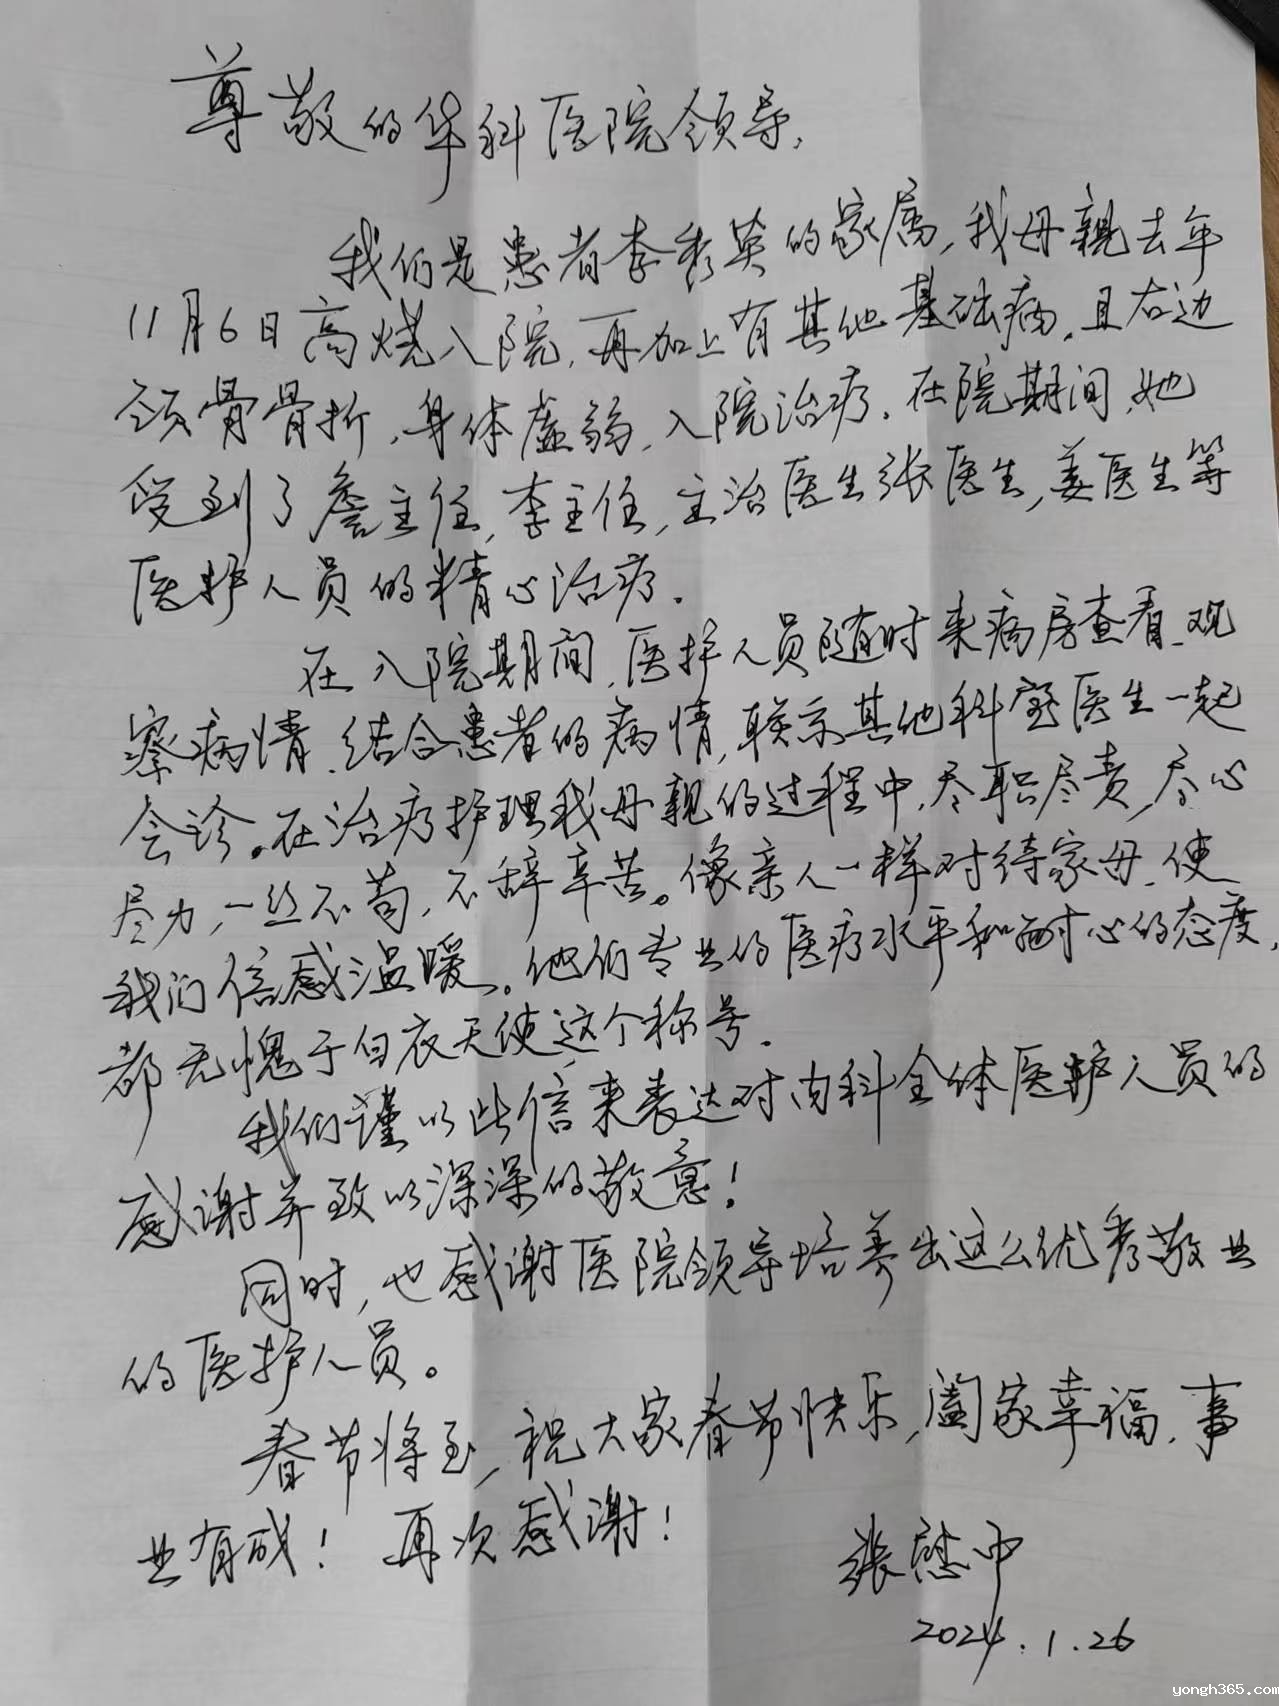 尊敬的华科医院领导,
我们是患者李秀英的家属,我母亲去年
11月6日高烧入院,再加上有其他基础病,且右边
颈骨骨折,身体虚弱,入院治疗.在院期间,她
受到了詹主任,李主任,主治医生张医生,姜医生等
医护人员的精心治疗.
在入院期间,医护人员随时来病房查看、观
察病情.结合患者的病情,联系其他科室医生一起
会诊。在治疗护理我母亲的过程中,尽职尽责,尽心
尽力,一丝不苟,不辞辛苦。像亲人一样对待家母,使
我们倍感温暖。他们专业的医疗水平和耐心的态度,
都无愧于白衣天使这个称号.
我们谨以此信来表达对内科全体医护人员的
感谢并致以深深的敬意!
同时,也感谢医院领导培养出这么优秀敬业
的医护人员。
春节将至,祝大家春节快乐,阖家幸福,事
业有成! 再次感谢!
张慰中
2024.1.26
yongh365.com